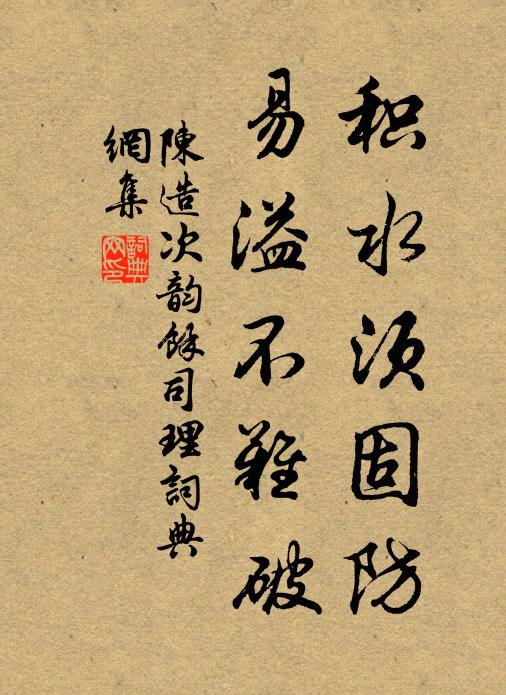 积水须固防
易溢不难破
陳造次韵餘司理詞典
網集
詞典網印